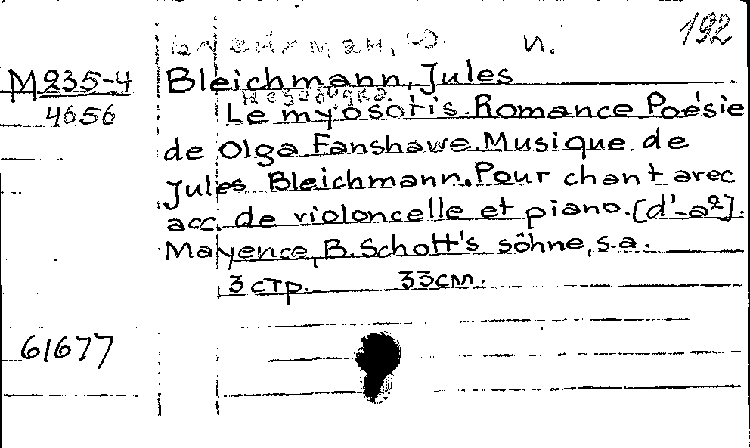 192
Блейхман, Ю. И.
М 235-4
4656
Bleichmann, Jules
Незабудка
Le myosotis. Romance Poésie
de Olga Fanshawe. Musique de
Jules Bleichmann. Pour chant avec
acc. de violoncelle et piano. [d'-a²].
Mayence, B. Schott's söhne, s.a.
3 стр. 33см.
61677